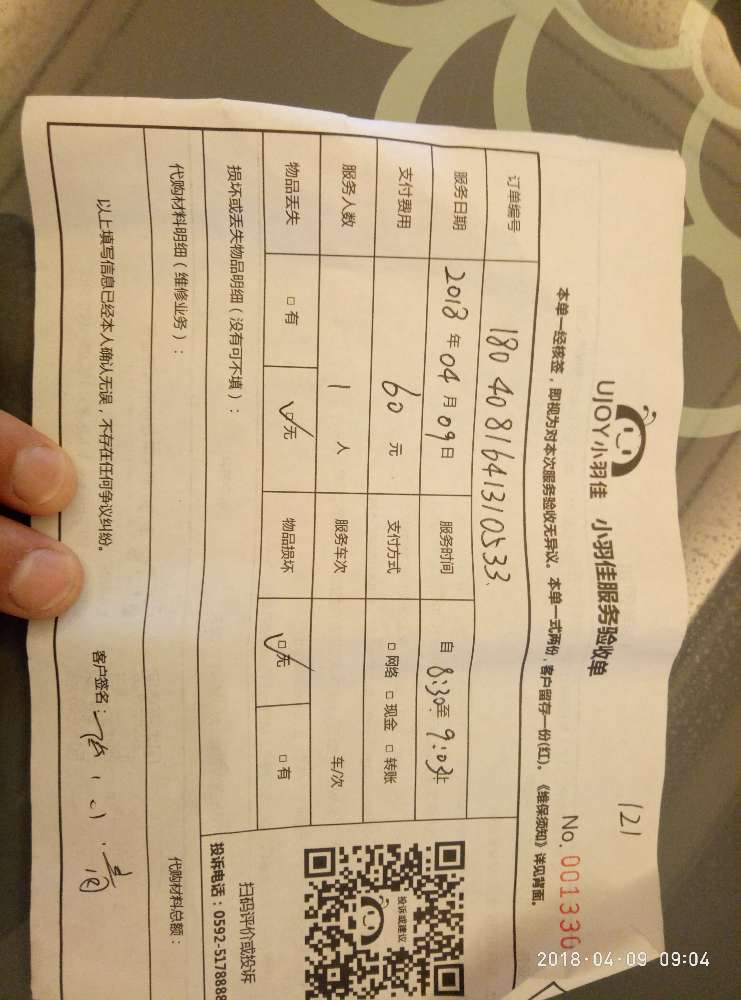 121
UJOY小羽佳 小羽佳服务验收单
No. 001330
本单一经核签，即视为对本次服务验收无异议。本单一式两份，客户留存一份(红)。《维保须知》详见背面。
订单编号 180408164131053​3
服务日期 2018年04月09日 服务时间 自 8:30至 9:03止
支付费用 60元 支付方式 □网络 □现金 □转账
服务人数 1 人 服务车次 车/次
物品丢失 □有 ☑无 物品损坏 ☑无 □有
损坏或丢失物品明细（没有可不填）：
代购材料明细（维修业务）：
代购材料总额：
以上填写信息已经本人确认无误，不存在任何争议纠纷。
客户签名：
投诉或建议
扫码评价或投诉
投诉电话：0592-5178888
2018-04-09 09:04